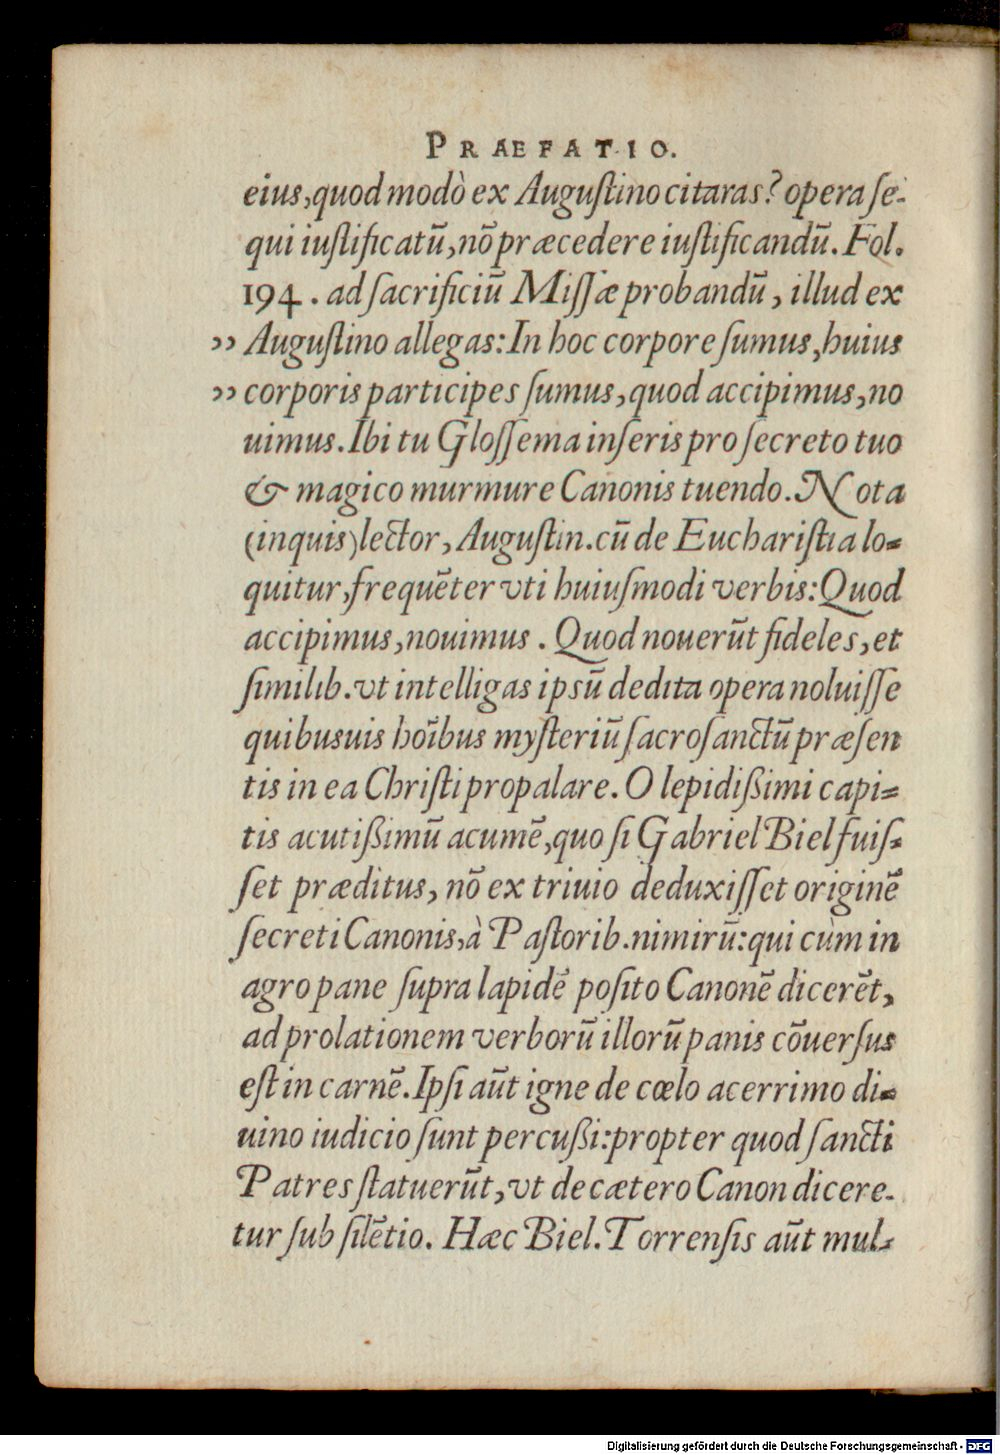 PRAEFATIO.
eius,quod modò ex Auguſtino citaras? opera ſe-
qui iuſtificatū,nō præcedere iuſtificandū. Fol.
194. ad ſacrificiū Miſſæ probandū, illud ex
›› Auguſtino allegas: In hoc corpore ſumus,huius
›› corporis participes ſumus,quod accipimus,no
uimus. Ibi tu Gloſſema inſeris pro ſecreto tuo
& magico murmure Canonis tuendo. Nota
(inquis) lector, Auguſtin. cū de Euchariſtia lo-
quitur,frequēter vti huiuſmodi verbis: Quod
accipimus,nouimus. Quod nouerūt fideles, et
ſimilib. vt intelligas ipsū dedita opera noluiſſe
quibusuis hoībus myſteriū ſacroſanctū præſen
tis in ea Chriſti propalare. O lepidißimi capi-
tis acutißimū acumē,quo ſi Gabriel Biel fuiſ-
ſet præditus, nō ex triuio deduxiſſet originē
ſecreti Canonis,à Paſtorib. nimirū: qui cùm in
agro pane ſupra lapidē poſito Canonē dicerēt,
ad prolationem verborū illorū panis cōuerſus
eſt in carnē. Ipſi aūt igne de cœlo acerrimo di-
uino iudicio ſunt percußi: propter quod ſancti
Patres ſtatuerūt,vt de cætero Canon dicere-
tur ſub ſilētio. Hæc Biel. Torrenſis aūt mul-
Digitalisierung gefördert durch die Deutsche Forschungsgemeinschaft - DFG